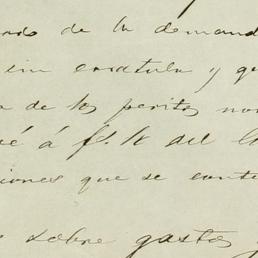 de la demand
sin caratula y qu
a de los peritos no
é á f. K del
ciones que se conte
sobre gastos